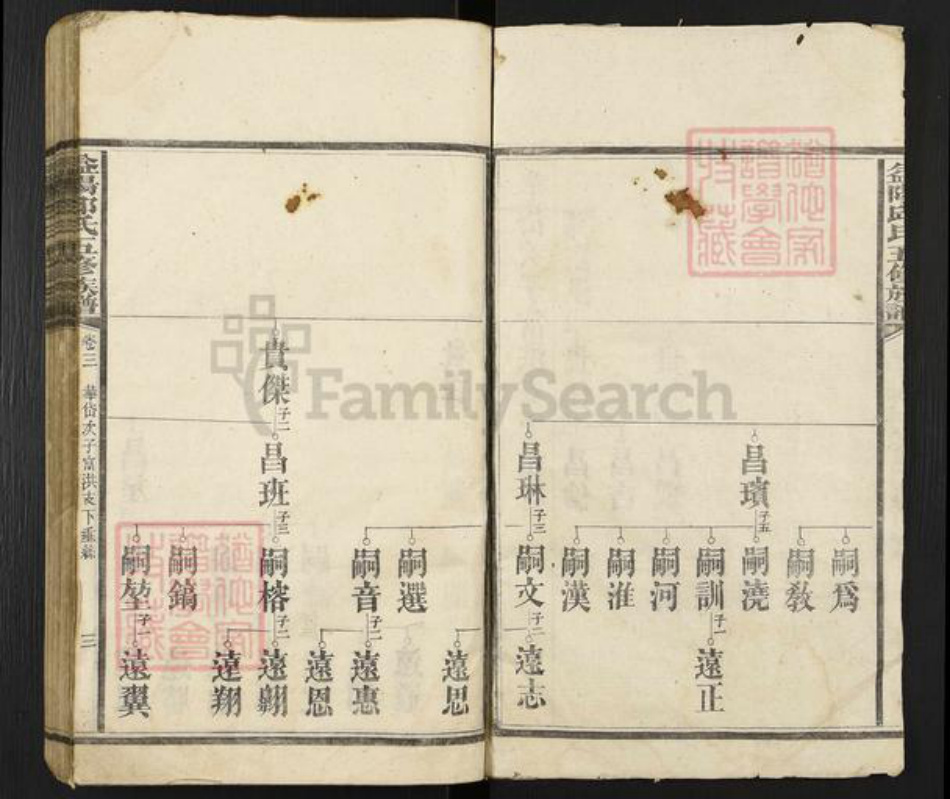 昌璸
子五
嗣為
嗣教
嗣澆
嗣訓
子一
遠正
嗣河
嗣淮
嗣漢
昌琳
子三
嗣文
子二
遠志
遠思
嗣選
嗣音
子二
遠惠
遠恩
貴傑
子二
昌班
子三
嗣榕
子二
遠翱
遠翔
嗣鎬
嗣堃
子一
遠翼
氏五修族譜
卷三
華岱次子富洪支下垂絲
三
FamilySearch